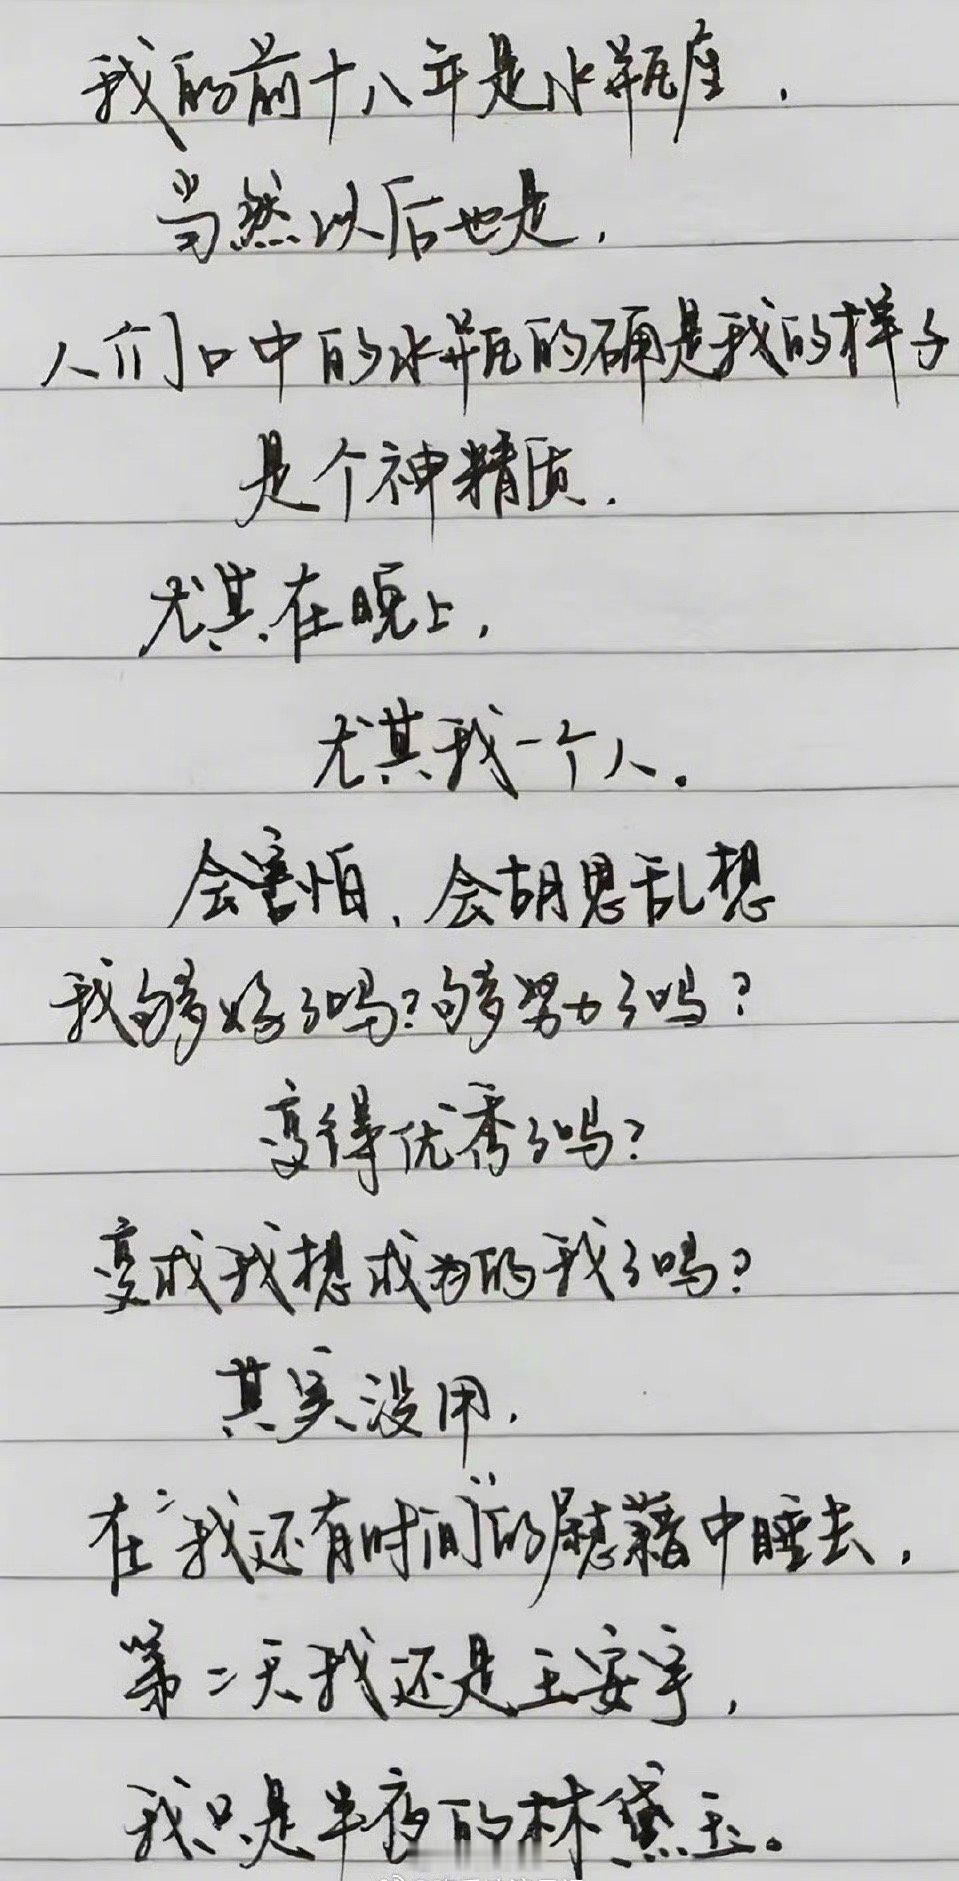 我的前十八年是水瓶座,
当然以后也是,
人们口中的水瓶的确是我的样子
是个神精质.
尤其在晚上,
尤其我一个人。
会害怕,会胡思乱想
我够好了吗?够努力了吗?
变得优秀了吗?
变成我想成为的我了吗?
其实没用,
在“我还有时间”的慰藉中睡去,
第二天我还是王安宇,
我只是半夜的林黛玉。